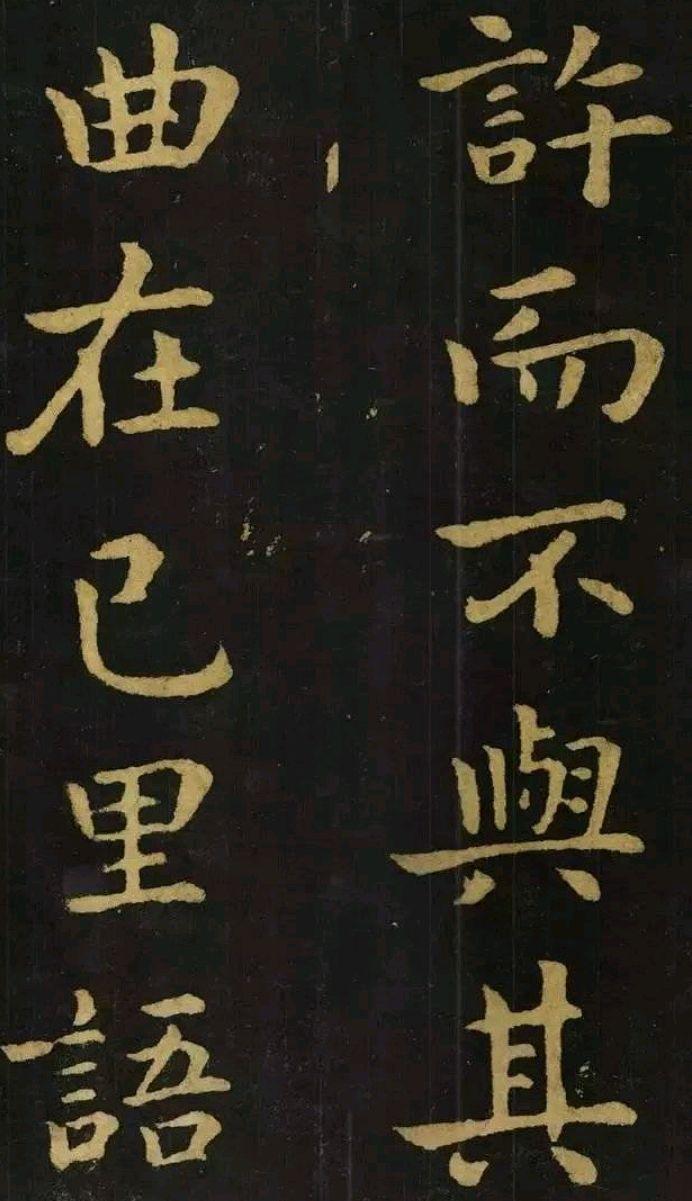 許而不與其
曲在己里語